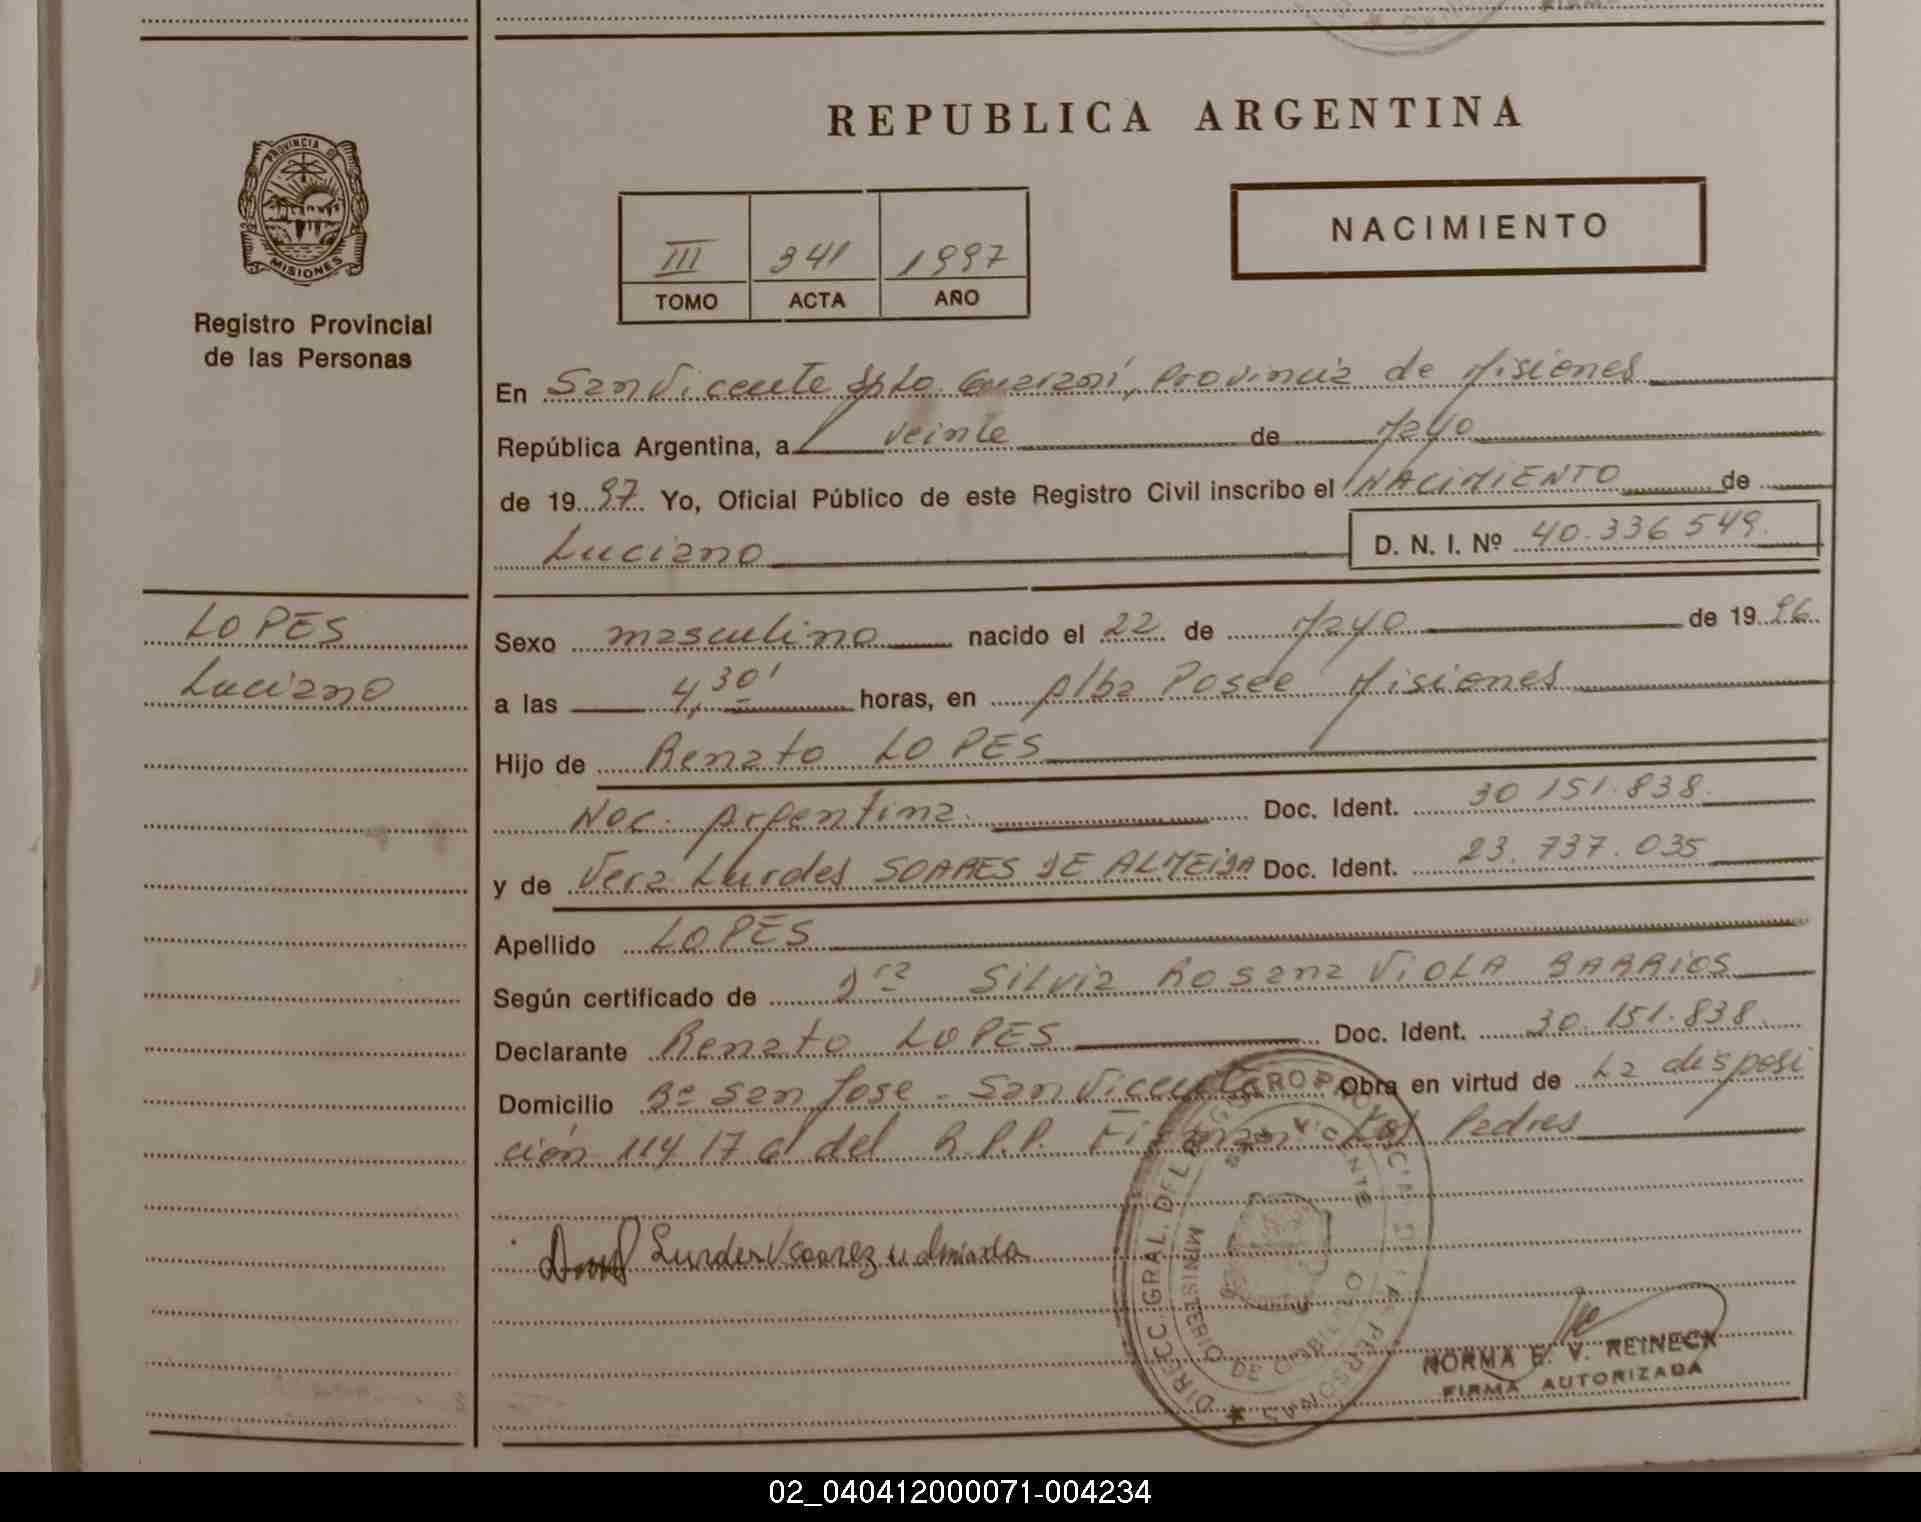 REPUBLICA ARGENTINA
PROVINCIA DE
MISIONES
Registro Provincial
de las Personas
III 341 1997
TOMO ACTA AÑO
NACIMIENTO
En San Vicente Dpto. Guaraní, Provincia de Misiones
República Argentina, a veinte de Mayo
de 1997 Yo, Oficial Público de este Registro Civil inscribo el NACIMIENTO de
Luciano D. N. I. Nº 40.336 549.
LOPES
Luciano
Sexo masculino nacido el 22 de Mayo de 1996.
a las 4,30' horas, en Alba Posse Misiones
Hijo de Renato LOPES
Nac. Argentina. Doc. Ident. 30 151.838.
y de Vera Lurdes SOARES DE ALMEIDA Doc. Ident. 23.737.035
Apellido LOPES
Según certificado de Dra Silvia Rosana VIOLA BARRIOS
Declarante Renato LOPES Doc. Ident. 30.151.838.
Domicilio Bº San Jose - San Vicente Obra en virtud de La disposi
ción 114 17 del R.P.P. Firman Los Padres
Lurdes
DIRECC. GRAL. DEL REGISTRO PROVINCIAL DE LAS PERSONAS
SAN VICENTE
MINISTERIO DE GOBIERNO
NORMA E. V. REINECK
FIRMA AUTORIZADA
02_040412000071-004234